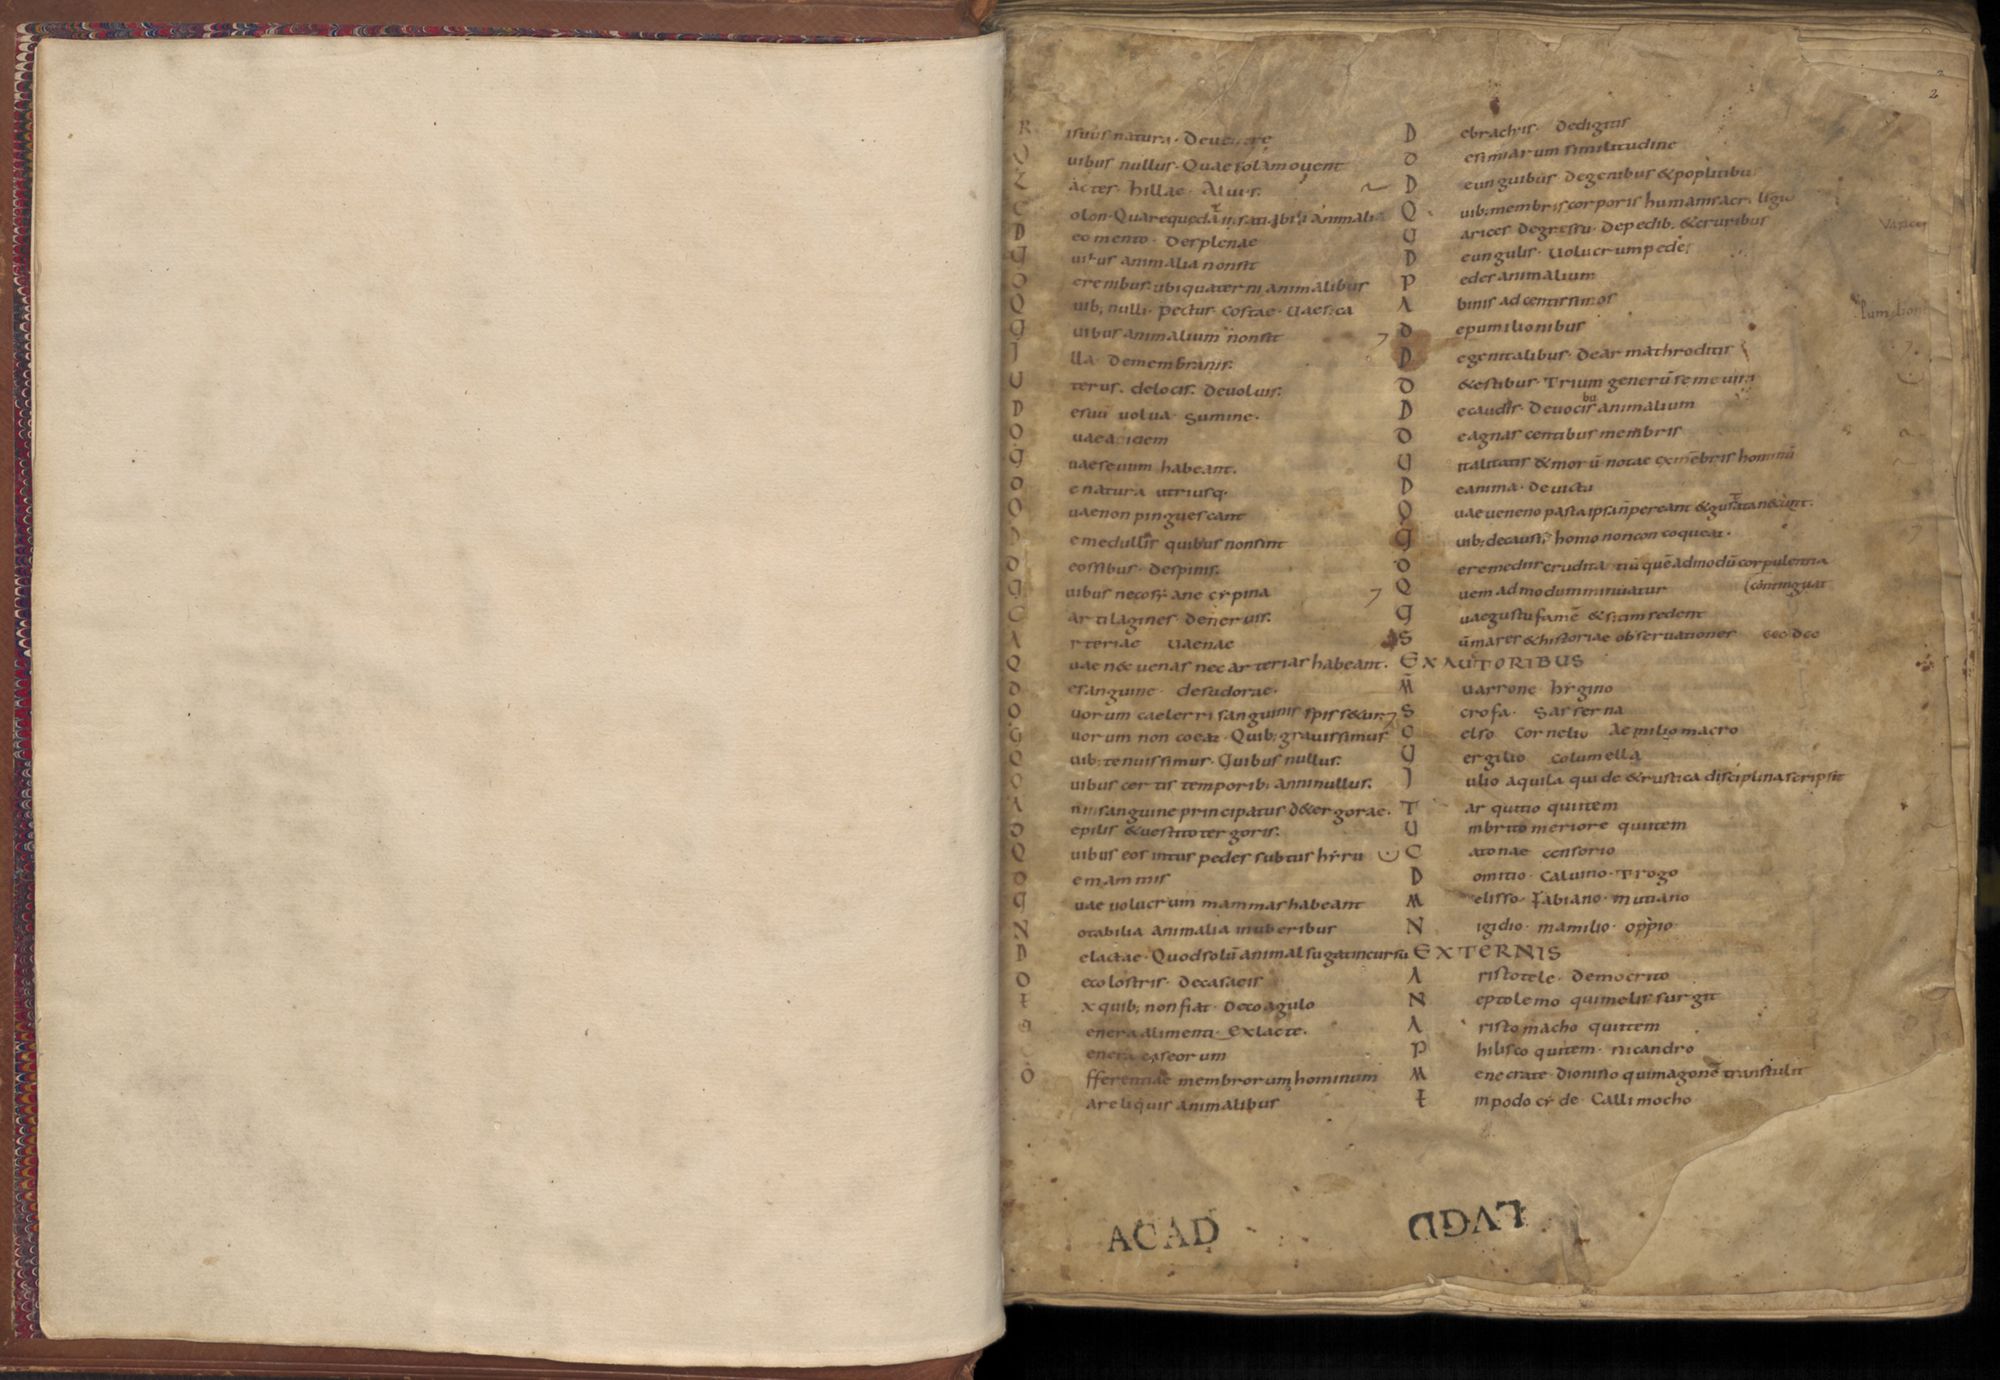 2
R isus natura. De uentre
Quibus nullus. Quae sola mouent
Lactes. hillae. Aluus.
Colon. Quare quedã insatiabilia animalia
De omento. De splenae
Quibus animalia non sit
De renibus. ubi quaterni animalibus
Quib; nulli. pectus. Costae. Uaesica
Quibus animalium non sit
Illa. De membranis.
Uterus. de locis. De uoluis.
De sui uolua. Sumine.
Quae a idem
Quae seuum habeant.
De natura utriusq.
Quae non pinguescant
De medullis quibus non sint
De ossibus. De spinis.
Quibus nec ossa nec spina
Cartilagines. De neruis.
Arteriae Uaenae
Quae nec uenas nec arterias habeant.
De sanguine. de sudorae.
Quorum caelerri sanguinis spissetur
Quorum non coeat. Quib; grauissimus
Quib; tenuissimus. Quibus nullus.
Quibus certis temporib; anni nullus.
An in sanguine principatus. De tergorae.
De pilis & uestito tergoris.
Quibus eos intus pedes subtus hirti
De mammis
Quae uolucrum mammas habeant
Notabilia animalia in uberibus
De lactae. Quod solũ animal sugat in cursu
De colostris. De casaeis
Ex quib; non fiat. De coagulo
Genera alimenti. Ex lacte.
Genera caseorum
Differentiae membrorum hominum
a reliquis animalibus
De brachis. De digitis
De simiarum similitudine
De unguibus. De genibus & poplitibus
Quib; membris corporis humani sacra religio
Uarices De gressu. De pedib; & cruribus
De ungulis. Uolucrum pedes
Pedes animalium
A binis ad centissimos
De pumilionibus
De genitalibus. De armathroditis
De testibus. Trium generũ semeuiri
De caudis. De uocibus animalium
De agnascentibus membris
Uitalitatis & morũ notae ex mẽbris hominũ
De anima. De uictu
Quae ueneno pasta ipsa nõ pereant & gustata necant.
Quib; de causis homo non concoqueat.
De remediis cruditatiũ quẽadmodũ corpulentia
Quemadmodum minuatur (contingat
Quae gustu famẽ & sitim sedent
Sũma res & historiae obseruationes
EX AUTORIBUS
M̃ uarrone hygino
Scrofa. Saserna
Celso Cornelio Aemilio macro
Uergilio Columella
Julio aquila qui de &rustica disciplina scripsit
Tarquitio qui item
Umbrico meriore qui item
Catonae censorio
Domitio. Caluino. Trogo
Melisso. Fabiano. mutiano
Nigidio. mamilio. oppio.
EXTERNIS
Aristotele. Democrito
Neptolemo qui melis surgit
Aristomacho qui item
Philisco qui item. nicandro
Menecrate. dionisio qui magonẽ transtulit
Empodocle de. Callimocho
ACAD LVGD